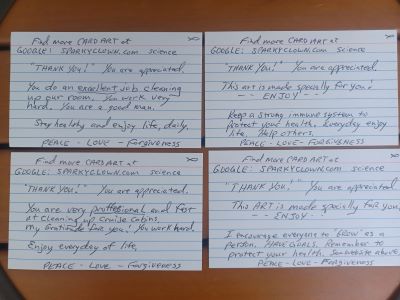 Find more CARD ART at
GOOGLE: SPARKYCLOWN.com science
"THANK YOU!" You are appreciated.
You do an excellent job cleaning
up our room. You work very
hard. You are a good man.
Stay healthy and enjoy life, daily.
PEACE - LOVE - Forgiveness
Find more CARD ART at
GOOGLE: SPARKYCLOWN.com science
"THANK YOU!" You are appreciated.
This art is made specially for you!
- - ENJOY - -
Keep a strong immune system to
protect your health. Everyday enjoy
life. Help others.
PEACE - LOVE - FORGIVENESS
Find more CARD ART at
GOOGLE: SPARKYCLOWN.com science
"THANK YOU!" You are appreciated.
You are very proffesional and fast
at cleaning up cruise cabins.
my Gratitude for you! You work hard.
Enjoy everyday of life,
PEACE - LOVE - Forgiveness
Find more CARD ART at
GOOGLE: SPARKYCLOWN.com science
"THANK YOU!" You are appreciated
This ART is made specially for you,
- - ENJOY - -
I encourage everyone to "GROW" as a
person. HAVE GOALS. Remember to
protect your health. See website above
PEACE - LOVE - Forgiveness